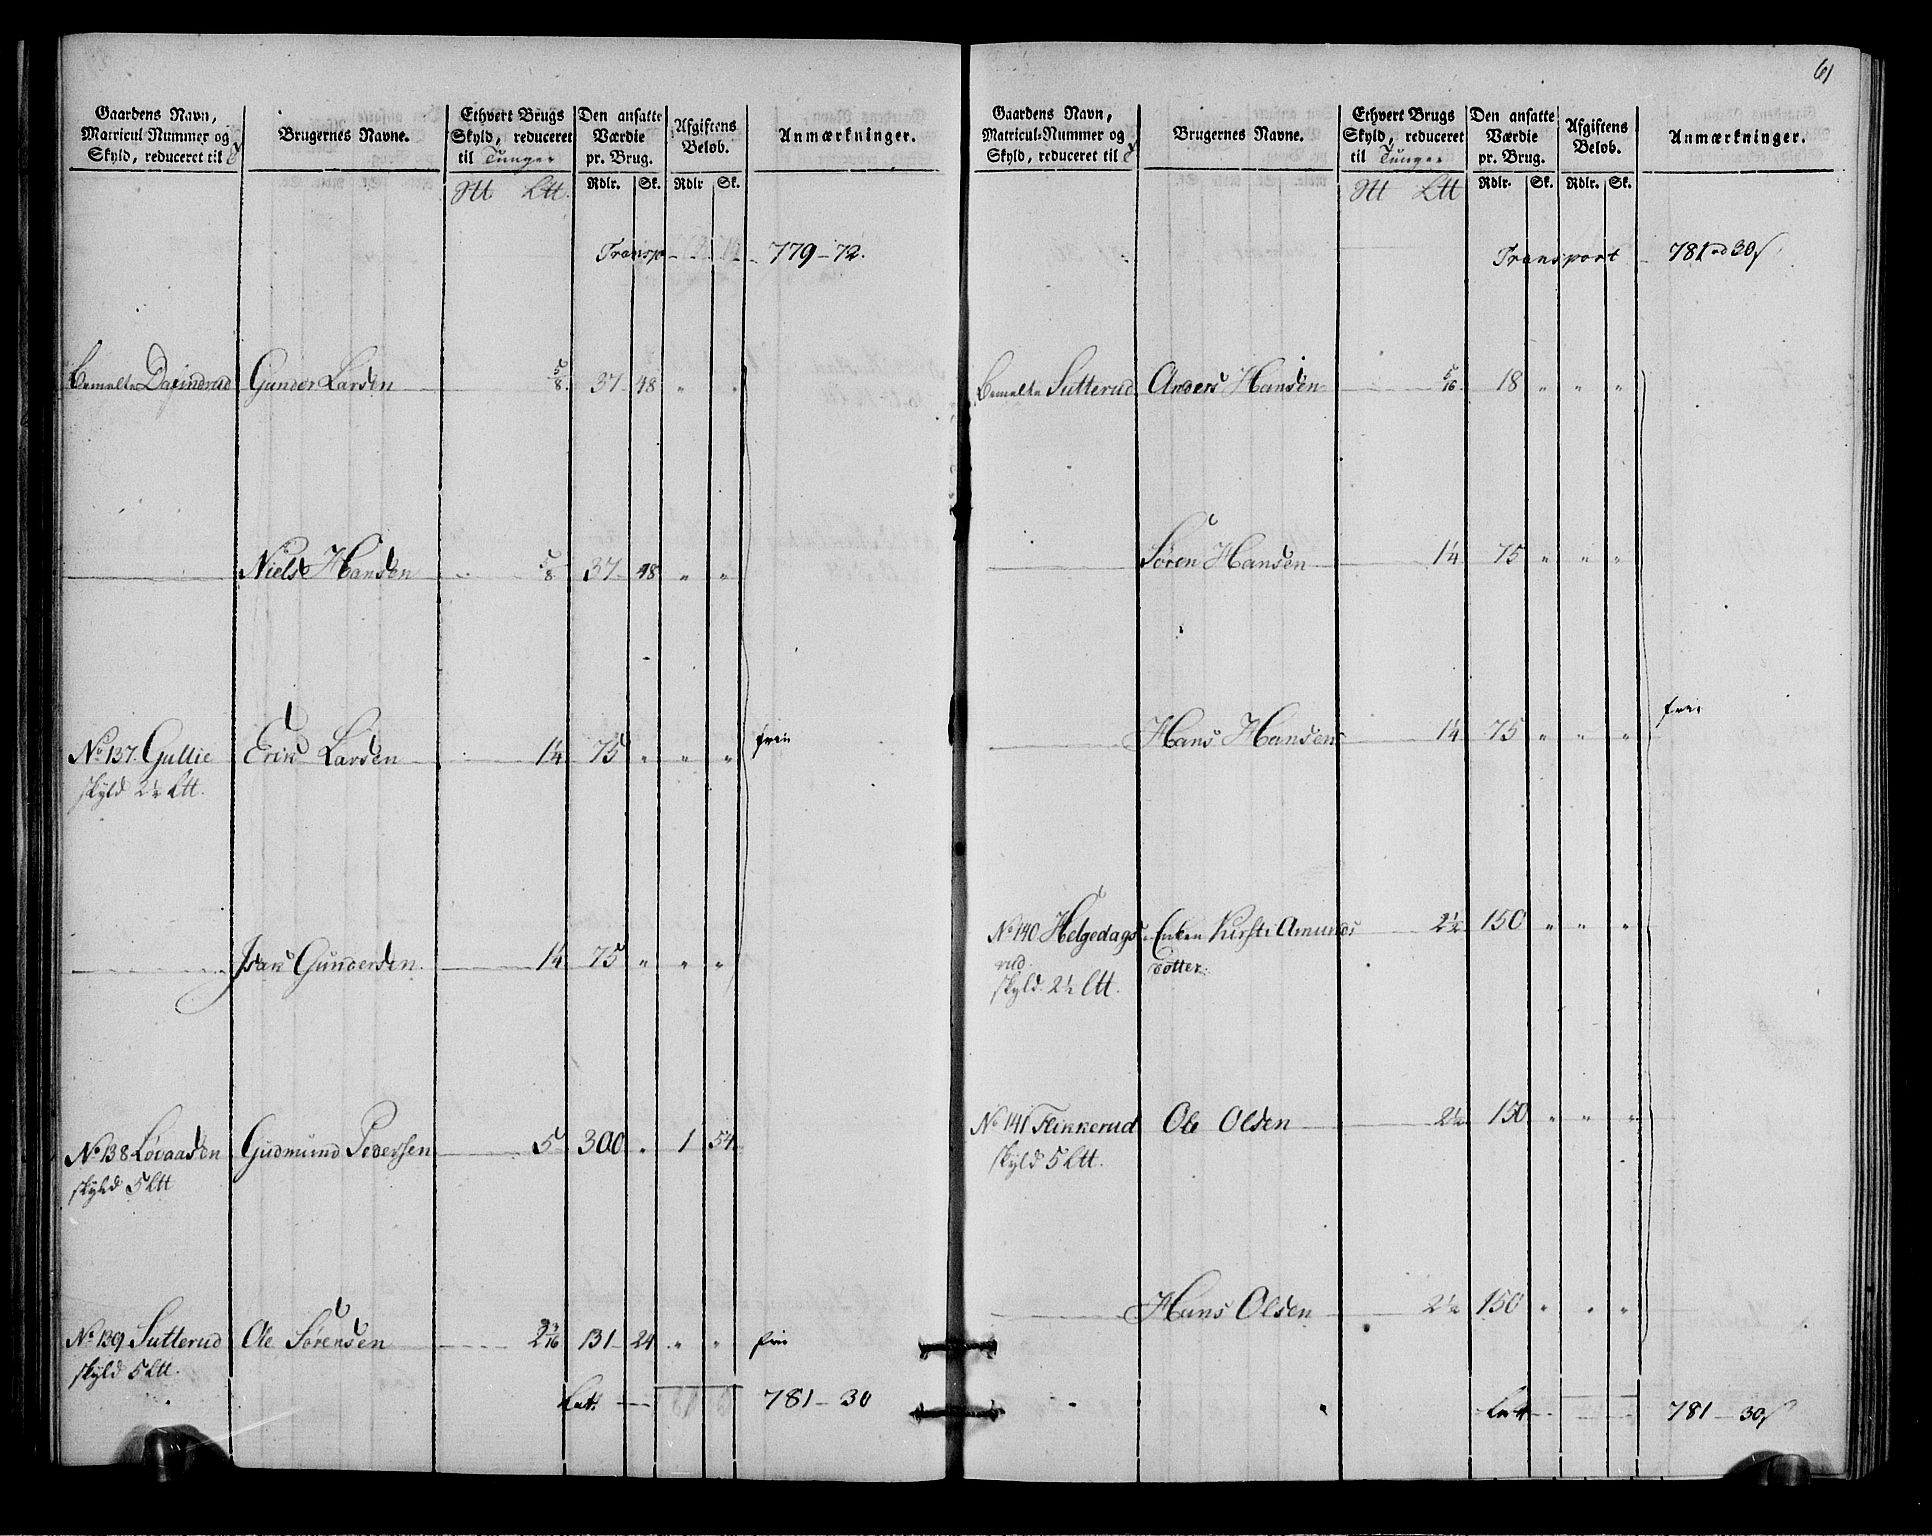 61
Gaardens Navn, Matricul-Nummer og Skyld, reduceret til
Brugernes Navne.
Ethvert Brugs Skyld, reduceret til Tunger
Den ansatte Værdie pr. Brug.
Afgiftens Beløb.
Anmærkninger.
Rdlr. Sk. Rdlr Sk.
Transp 779-72.
bemelte Gunder Larsen 5/8. 37 48 " "
Niels Hansen 5/8 37 48 " "
No 137. Gullie Erik Larsen 1¼ 75 " " " frie
skyld 2½ Ltt.
Isak Gundersen 1¼ 75 " " "
No 138 Løvaasen Gudmund Pedersen 5 300 " 1 54
skyld 5 Ltt
No 139 Sutterud Ole Sørensen 2 3/16 131 24 " " frie
skyld 5 Ltt.
Lat. 781-30
Gaardens Navn, Matricul-Nummer og Skyld, reduceret til
Brugernes Navne.
Ethvert Brugs Skyld, reduceret til Tunger
Den ansatte Værdie pr. Brug.
Afgiftens Beløb.
Anmærkninger.
Rdlr. Sk. Rdlr. Sk.
Transport 781 rd 30 s
bemelte Sutterud Anders Hansen 5/16 18 " " "
Søren Hansen 1¼ 75 " " "
Hans Hansen 1¼ 75 " " " frie
No 140 Helgedags Enken Kirsti Amunds 2½ 150 " " "
rud. dotter.
skyld 2½ Ltt.
No 141 Flikkerud Ole Olsen 2½ 150 " " "
skyld 5 Ltt.
Hans Olsen 2½ 150 " " "
Lat 781-30 s